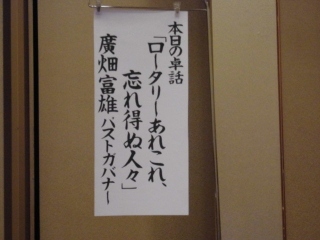 本日の卓話
「ロータリーあれこれ、
忘れ得ぬ人々」
廣畑富雄パストガバナー